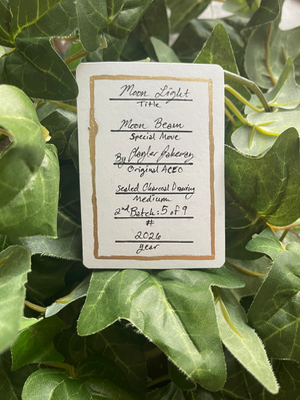 Moon Light
Title
Moon Beam
Special Move
By
Original ACEO
Sealed Charcoal Drawing
Medium
2nd Batch: 5 of 9
#
2026
year